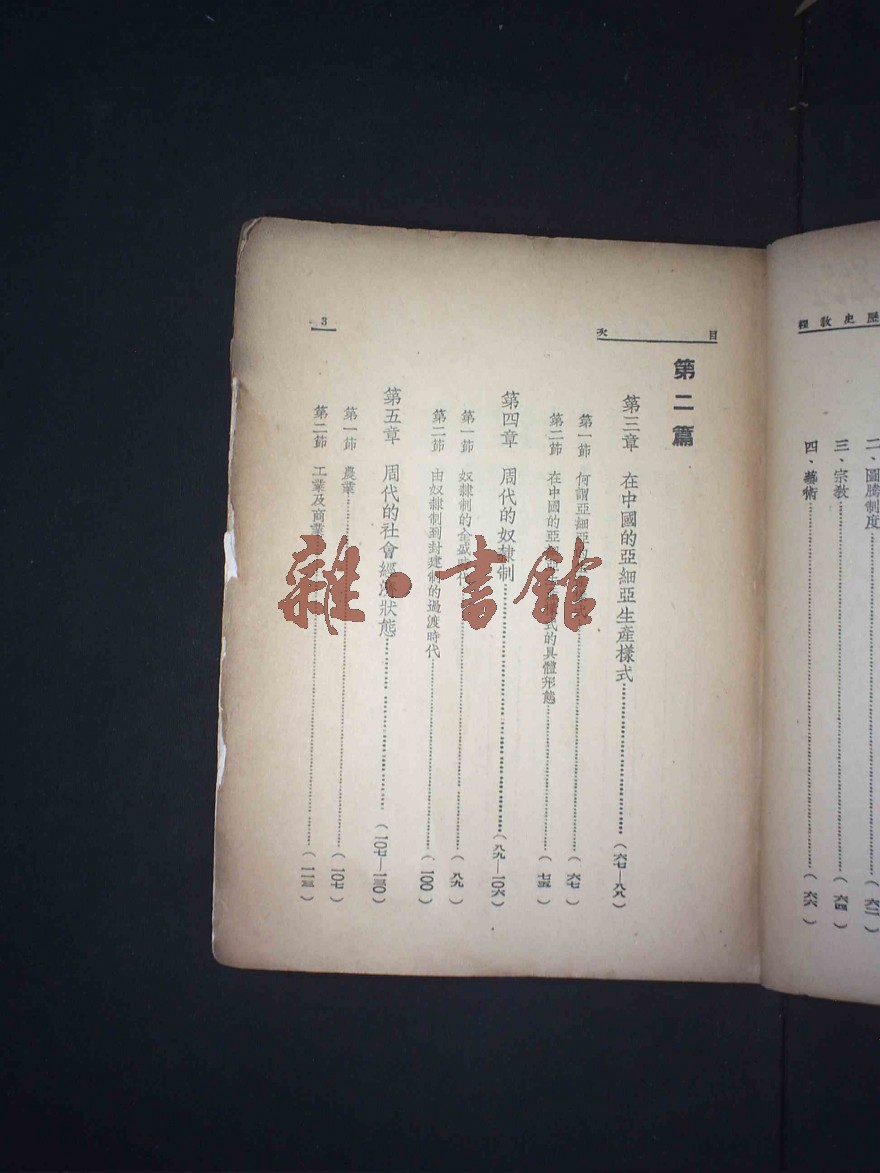 歷史教程
二、圖騰制度……(六二)
三、宗教……(六四)
四、藝術……(六六)
目次
第二篇
第三章 在中國的亞細亞生產樣式……(六七—八八)
第一節 何謂亞細亞的……(六七)
第二節 在中國的亞 樣式的具體形態……(七五)
第四章 周代的奴隸制……(八九—一〇六)
第一節 奴隸制的全盛時代……(八九)
第二節 由奴隸制到封建制的過渡時代……(一〇〇)
第五章 周代的社會經濟狀態……(一〇七—一三〇)
第一節 農業……(一〇七)
第二節 工業及商業……(一一三)
3
雜·書館